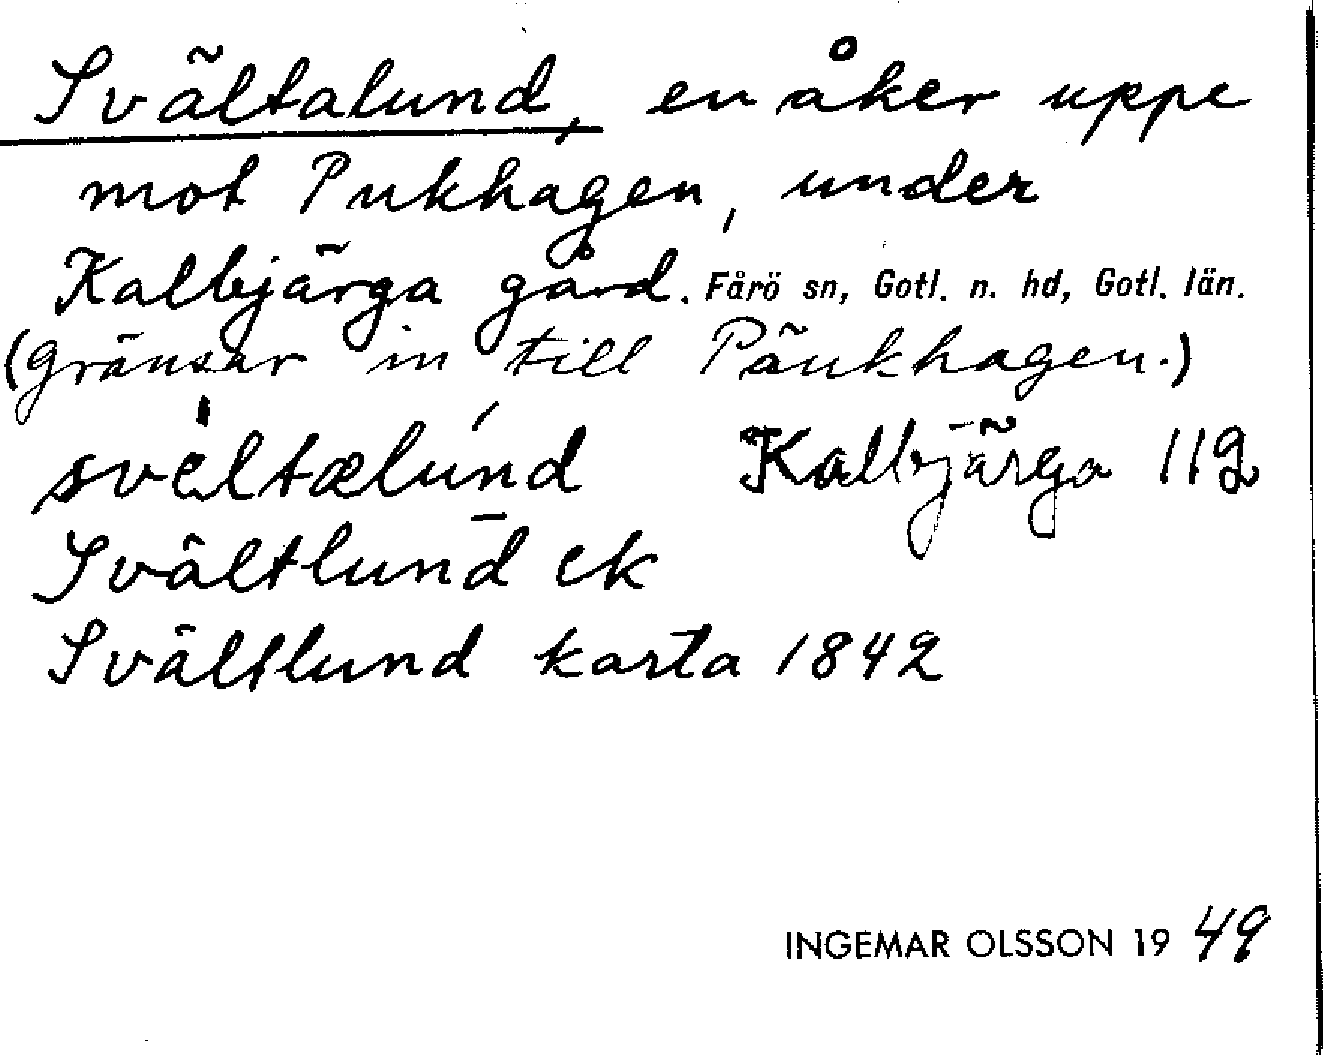 Svältalund, en åker uppe
mot Pukhagen, under
Kalbjärga gård. Fårö sn, Gotl. n. hd, Gotl. län.
(gränsar in till Päukhagen.)
sveltælund Kalbjärga 112
Svältlund ek
Svältlund karta 1842
INGEMAR OLSSON 1949